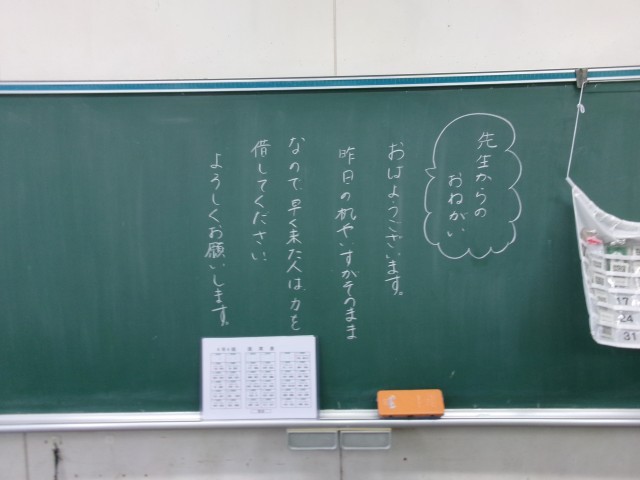 先生からの
おねがい
おはようございます。
昨日の机やいすがそのまま
なので、早く来た人は、力を
借してください。
よろしくお願いします。
17
24
31